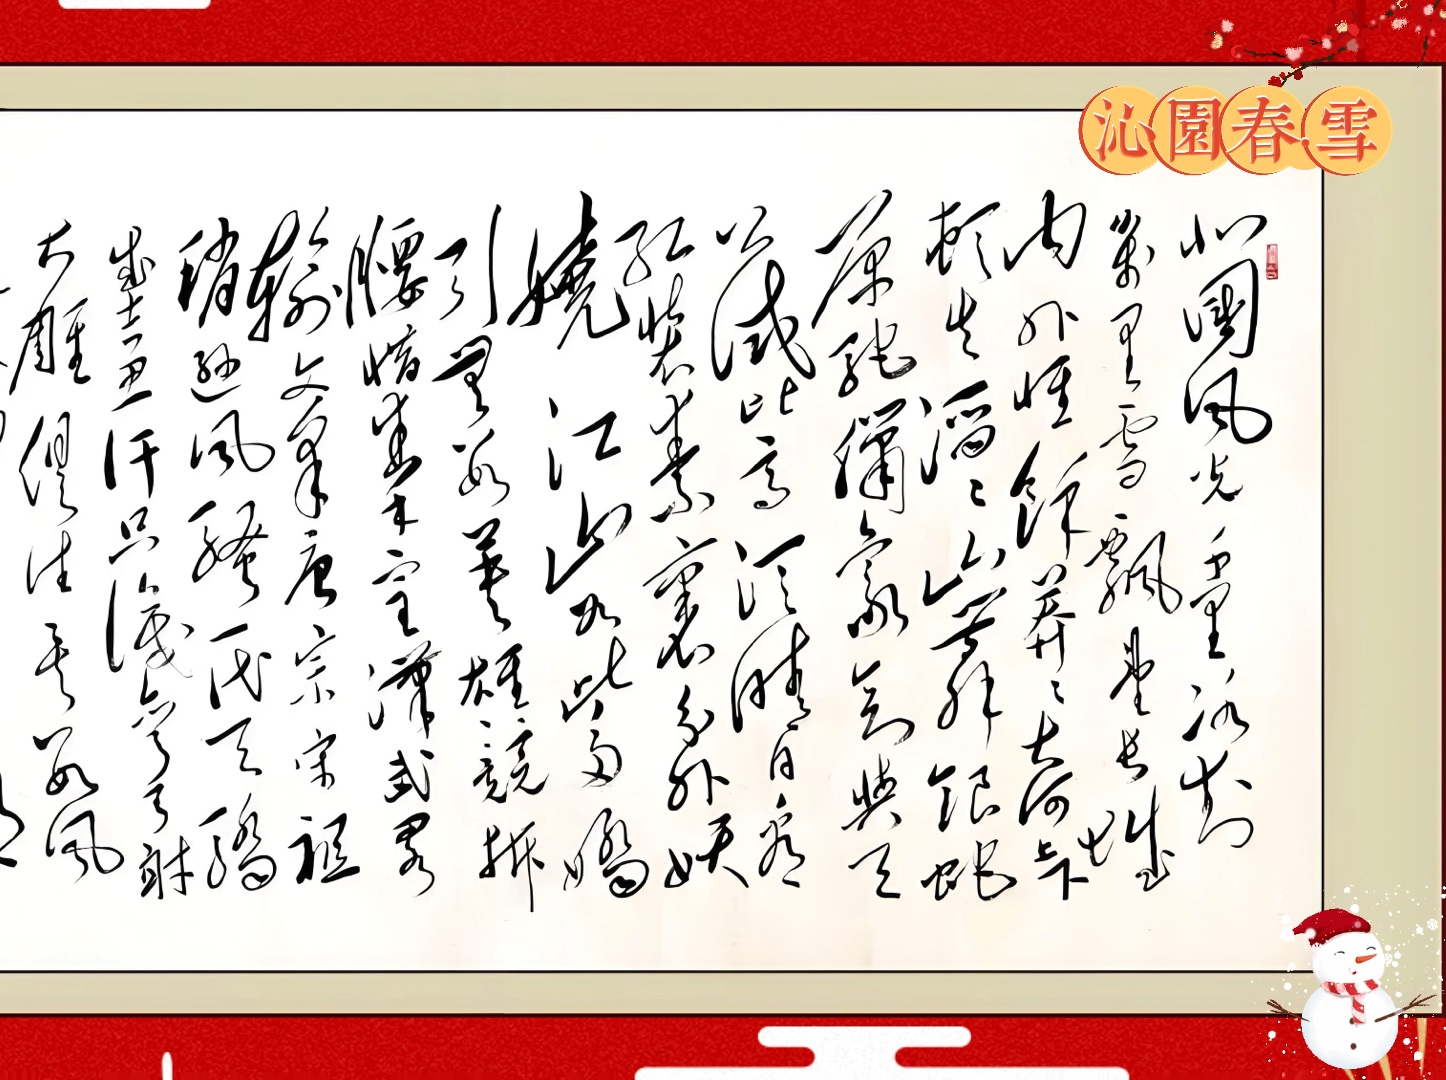 沁園春·雪
北國風光千里冰封
萬里雪飄望長城
内外惟餘莽莽大河上下
頓失滔滔山舞銀蛇
原馳蠟象欲與天
公試比高須晴日看
紅裝素裹分外妖
嬈江山如此多嬌
引無數英雄競折
腰惜秦皇漢武略
輸文采唐宗宋祖
稍遜風騷一代天驕
成吉思汗只識彎弓射
大雕俱往矣數風